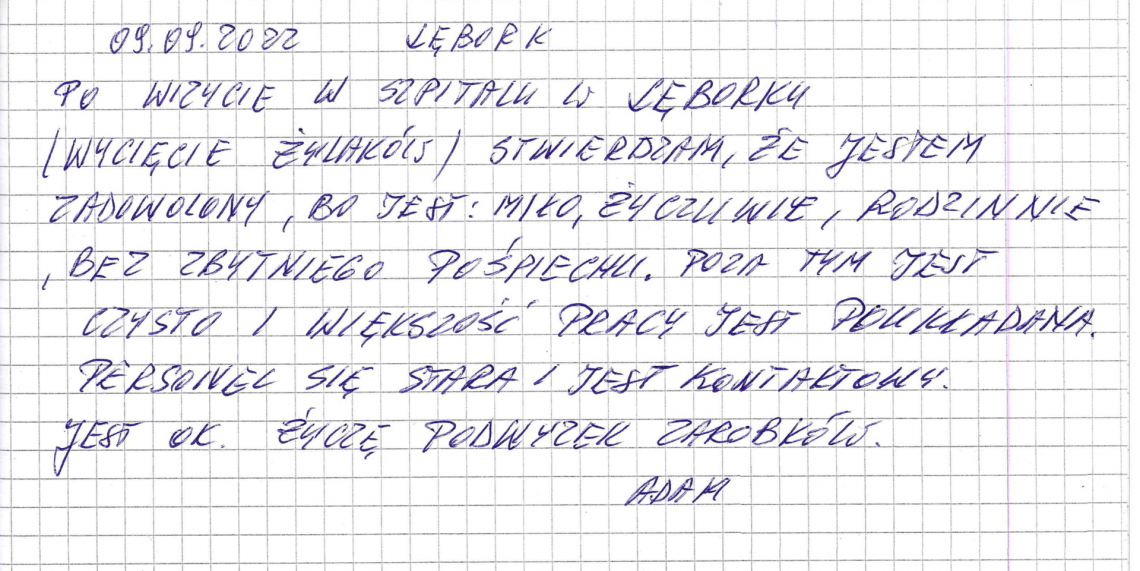 09.09.2022 LĘBORK
PO WIZYCIE W SZPITALU W LĘBORKU
(WYCIĘCIE ŻYLAKÓW) STWIERDZAM, ŻE JESTEM
ZADOWOLONY, BO JEST: MIŁO, ŻYCZLIWIE, RODZINNIE
, BEZ ZBYTNIEGO POŚPIECHU. POZA TYM JEST
CZYSTO I WIĘKSZOŚĆ PRACY JEST POUKŁADANA.
PERSONEL SIĘ STARA I JEST KONTAKTOWY.
JEST OK. ŻYCZĘ PODWYZEK ZAROBKÓW.
ADAM